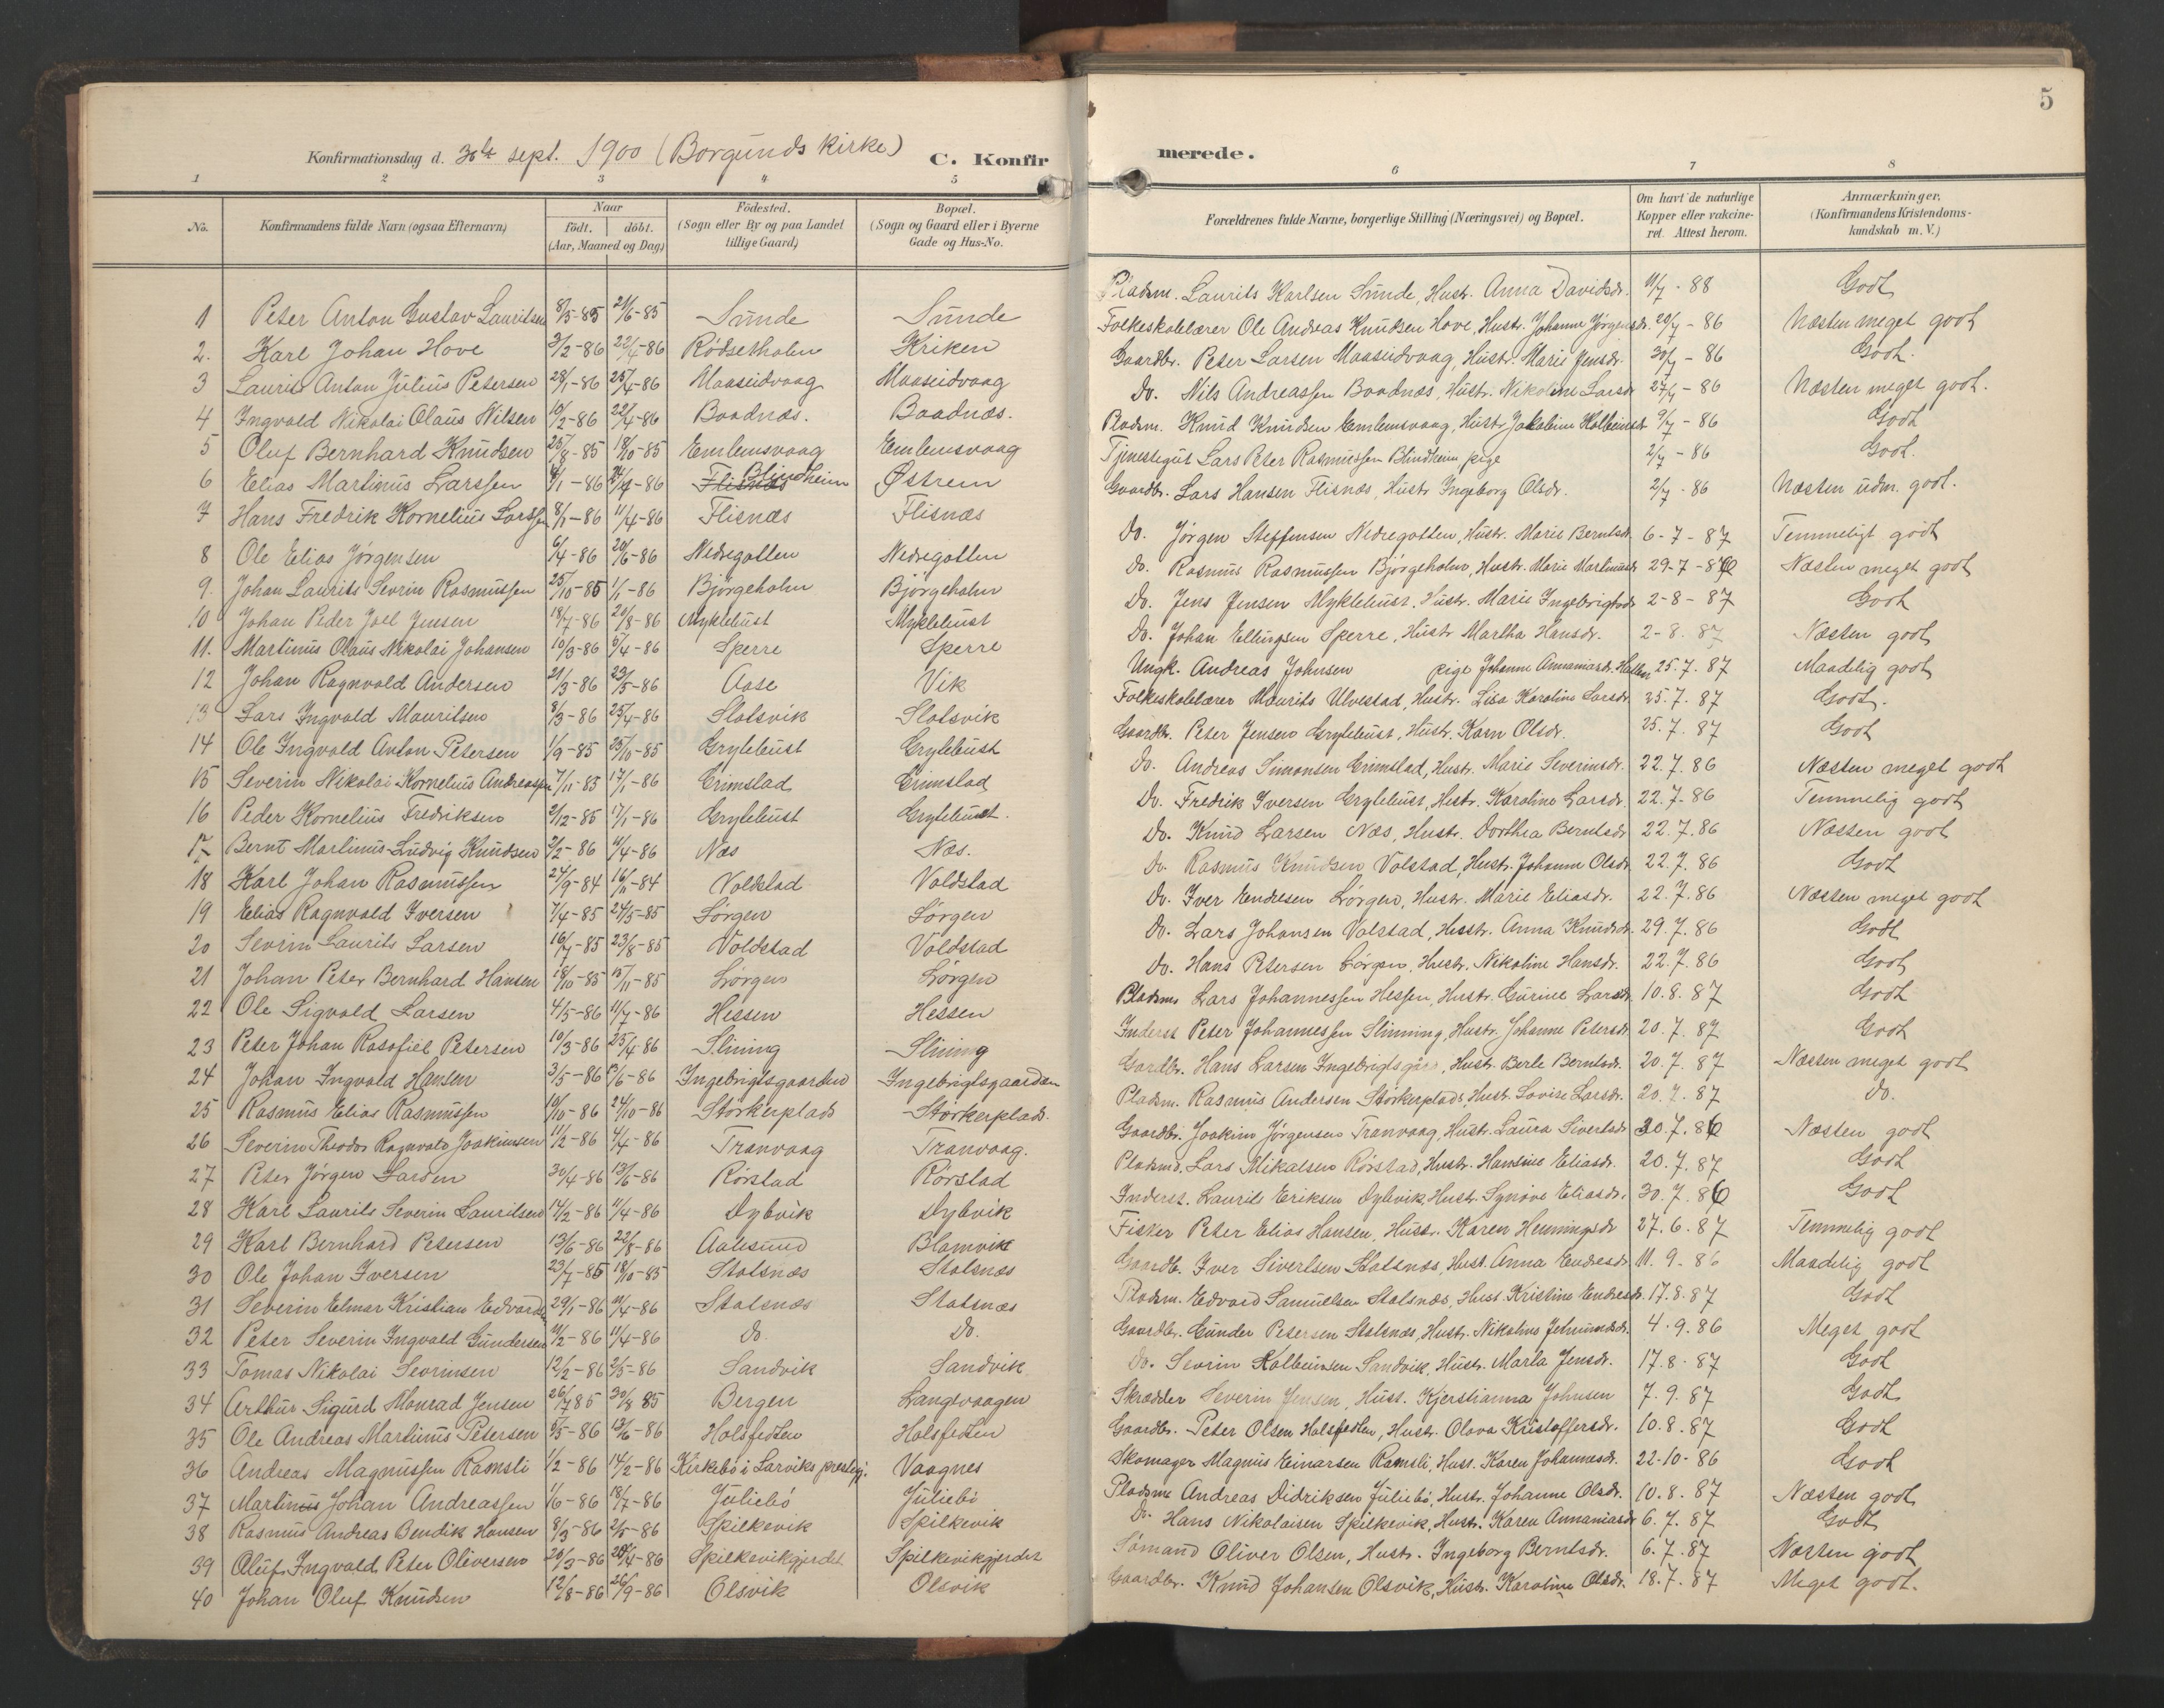 5
Konfirmationsdag d. 30te sept. 1900 (Borgunds kirke) C. Konfirmerede.
1 2 3 4 5 6 7 8
No. Konfirmandens fulde Navn (ogsaa Efternavn) Naar födt. döbt. (Aar, Maaned og Dag) Födested. (Sogn eller By og paa Landet tillige Gaard) Bopæl. (Sogn og Gaard eller i Byerne Gade og Hus-No. Forældrenes fulde Navne, borgerlige Stilling (Næringsvei) og Bopæl. Om havt de naturlige Kopper eller vakcineret. Attest herom. Anmærkninger. (Konfirmandens Kristendomskundskab m. V.)
1 Peter Anton Gustav Lauritsen 8/5-85 21/6-85 Sunde Sunde Pladsm. Laurits Karlsen Sunde, Hustr. Anna Davidsdr. 11/7-88 Godt
2. Karl Johan Hove 3/2-86 22/4-86 Rödsetholm Kriken Folkeskolelærer Ole Andreas Knudsen Hove, Hustr. Johanne Jørgensdr. 20/7-86 Næsten meget godt
3 Laurits Anton Julius Petersen 28/1-86 25/4-86 Maaseidvaag Maaseidvaag Gaardbr. Peter Larsen Maaseidvaag, Hustr. Marie Jensdr. 30/7-86 Godt.
4 Ingvald Nikolai Olaus Nilsen 10/2-86 22/4-86 Baadnæs. Baadnæs. Do. Nils Andreassen Baadnæs, Hustr. Nikoline Larsdr 27/7-86 Næsten meget godt.
5 Oluf Bernhard Knudsen 25/8-85 18/10-85 Emlemsvaag Emlemsvaag Pladsm. Knud Knudsen Emlemsvaag, Hustr. Jakobine Kolbeinsdr 9/7-86 Godt
6 Elias Martinus Larssen /1-86 /4-86 Flisnæs Blindheim Østrem Tjenestegut Lars Peter Rasmussen Blindheim, pige 2/7-86 Godt.
7 Hans Fredrik Kornelius Larssen 8/1-86 11/4-86 Flisnæs Flisnæs Gaardbr. Lars Hansen Flisnæs, Hustr Ingeborg Olsdr. 2/7-86 Næsten udm. godt.
8 Ole Elias Jørgensen 6/4-86 20/6-86 Nedregotten Nedregotten Do. Jørgen Steffensen Nedregotten, Hustr. Marie Berntsdr. 6-7-87 Temmeligt godt
9. Johan Laurits Sevrin Rasmussen 25/10-85 1/1-86 Bjørgeholm Bjørgeholm Do. Rasmus Rasmussen Bjørgeholm, Hustr. Marie Martinusdr 29-7-86 Næsten meget godt
10 Johan Peder Joel Jensen 18/7-86 20/8-86 Myklebust Myklebust Do. Jens Jensen Myklebust, Hustr. Marie Ingebrigtsdr 2-8-87 Godt
11. Martinus Olaus Nikolai Johansen 10/3-86 6/4-86 Sperre Sperre Do. Johan Ellingsen Sperre, Hustr Martha Hansdr. 2-8.87 Næsten godt
12 Johan Ragnvald Andersen 21/3-86 23/5-86 Aase Vik Ungk. Andreas Johnsen pige Johanne Annaniasdr. Hatlen 25.7.87 Maadelig godt
13 Lars Ingvald Mauritsen 8/3-86 25/4-86 Slotsvik Slotsvik Folkeskolelærer Maurits Ulvestad, Hustr. Lisa Karoline Larsdr. 25.7.87 Godt.
14 Ole Ingvald Anton Petersen 1/9-85 25/10-85 Grytebust Grytebust Gaardbr. Peter Jensen Grytebust, Hustr. Karn Olsdr. 25.7.87 Godt
15 Severin Nikolai Kornelius Andreassen 7/11-85 17/1-86 Grimstad Grimstad Do. Andreas Simonsen Grimstad, Hustr. Marie Severinsdr. 22.7.86 Næsten meget godt
16 Peder Kornelius Fredriksen 2/12-85 17/1-86 Grytebust Grytebust. Do. Fredrik Iversen Grytebust, Hustr. Karoline Larsdr. 22.7.86 Temmelig godt
17 Bernt Martinus Ludvig Knudsen 2/2-86 11/4-86 Næs Næs. Do. Knud Larsen Næs, Hustr. Dorthea Berntsdr. 22.7.86 Næsten godt
18 Karl Johan Rasmussen 24/9-84 16/11-84 Voldstad Voldstad Do. Rasmus Knudsen Volstad, Hustr. Johanne Olsdr. 22.7.86 Godt
19 Elias Ragnvald Iversen 7/4-85 24/5-85 Lørgen Lørgen Do. Iver Endresen Lørgen, Hustr. Marie Eliasdr. 22.7.86 Næsten meget godt
20 Sevrin Laurits Larsen 16/7-85 23/8-85 Voldstad Voldstad Do. Lars Johansen Volstad, Hustr. Anna Knudsdr. 29.7.86 Godt
21 Johan Peter Bernhard Hansen 18/10-85 15/11-85 Lørgen Lørgen Do. Hans Petersen Lørgen, Hustr. Nikoline Hansdr. 22.7.86 Godt
22 Ole Sigvald Larsen 4/5-86 11/7-86 Hessen Hessen Pladsm. Lars Johannessen Hessen, Hustr. Gurine Larsdr. 10.8.87 Godt
23 Peter Johan Rasofiel Petersen 10/3-86 25/4-86 Slining Slining Inderst Peter Johannessen Slinning, Hustr. Johanne Petersdr. 20.7.87 Godt
24 Johan Ingvald Hansen 3/5-86 /6-86 Ingebrigtsgaarden Ingebrigtsgaarden Gaardbr. Hans Larsen Ingebrigtsgård, Hustr. Berte Berntsdr. 20.7.87 Næsten meget godt
25 Rasmus Elias Rasmussen 10/10-86 24/10-86 Storkerplads Storkerplads. Pladsm. Rasmus Andersen Storkerplads, Hustr. Lovise Larsdr. 20.7.87 Do.
26 Severin Theodor Ragnvald Joakimsen 11/2-86 4/4-86 Tranvaag Tranvaag. Gaardbr. Joakim Jørgensen Tranvaag, Hustr. Laura Sivertsdr 30.7.86 Næsten godt
27 Peter Jørgen Larsen 30/4-86 13/6-86 Rørstad Rørstad Pladsmd. Lars Mikalsen Rørstad, Hustr. Hansine Eliasdr. 20.7.87 Godt
28 Karl Laurits Severin Lauritsen 14/2-86 11/4-86 Dybvik Dybvik Inderst. Laurits Eriksen Dybvik, Hustr. Synøve Eliasdr. 30.7.86 Godt
29 Karl Bernhard Petersen 13/6-86 22/8-86 Aalesund Blomvik Fisker Peter Elias Hansen, Hustr. Karen Henningsdr 27.6.87 Temmelig godt
30 Ole Johan Iversen 23/7-85 18/10-85 Stolsnæs Stolsnæs Gaardb. Iver Sivertsen Stolsnæs, Hust. Anna Endresdr. 11.9.86 Maadelig godt
31 Severin Elmar Kristian Edvards 29/1-86 11/4-86 Stolsnæs Stolsnæs Pladsm. Edvard Samuelsen Stolsnæs, Hust. Kristine Endresdr. 17.8.87 Godt
32 Peter Severin Ingvald Gundersen 11/2-86 11/4-86 Do. Do. Gaardbr. Gunder Petersen Stolsnæs, Hustr. Nikoline Jetmundsdr. 4.9.86 Meget godt
33 Tomas Nikolai Sevrinsen 12/2-86 2/5-86 Sandvik Sandvik Do. Sevrin Kolbeinsen Sandvik, Hustr. Marta Jensdr. 17.8.87 Godt
34 Arthur Sigurd Monrad Jensen 26/7 85 30/8 85 Bergen Langevaagen Skrædder Severin Jensen, Hust. Kjerstianna Johnsen 7.9.87 Godt
35 Ole Andreas Martinus Petersen 5/5-86 13/6-86 Holsfedten Holsfedten Gaardbr. Peter Olsen Holsfedten, Hustr. Olava Kristoffersdr. 10.8.87 Godt
36 Andreas Magnussen Ramsli 1/2-86 14/2-86 Kirkebø i Larviks prestegj. Vaagnes Skomager Magnus Einarsen Ramsli, Hust. Karen Johannesdr. 22-10-86 Godt
37 Martinus Johan Andreassen 1/6-86 18/7-86 Juliebø Juliebø Pladsm Andreas Didriksen Juliebø, Hustr. Johanne Olsdr. 10.8.87 Næsten godt
38 Rasmus Andreas Bendik Hansen 8/3-86 2/5-86 Spilkevik Spilkevik Do. Hans Nikolaisen Spilkevik, Hustr. Karen Annaniasdr 6.7.87 Godt
39 Oluf Ingvald Peter Oliversen 20/3-86 25/4-86 Spilkevikgjerdet Spilkevikgjerdet Sømand Oliver Olsen, Hustr. Ingeborg Berntsdr. 6.7.87 Næsten godt
40 Johan Oluf Knudsen 12/8-86 26/9-86 Olsvik Olsvik Gaardbr. Knud Johansen Olsvik, Hustr. Karoline Olsdr. 18.7.87 Meget godt.